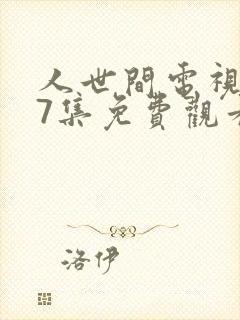 人世間電視
7集免費觀看
洛伊